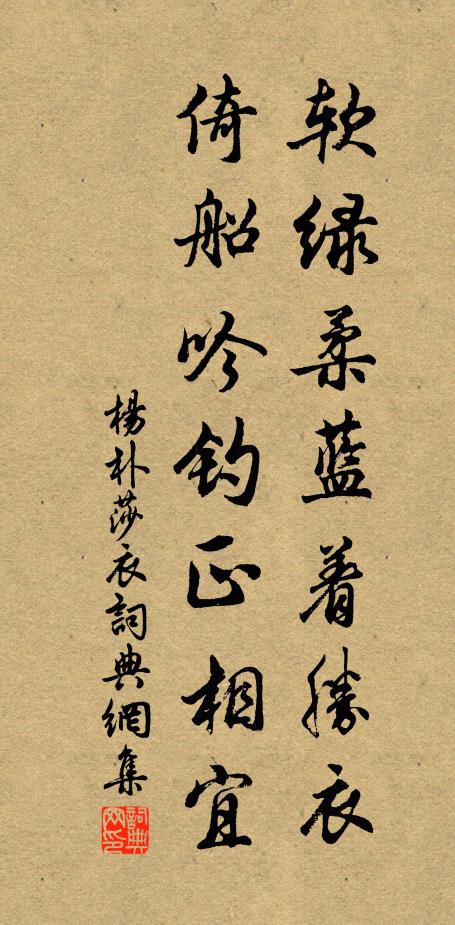 软绿柔藍着勝衣
倚船吟钓正相宜
楊朴莎衣詞典網集
詞典网印